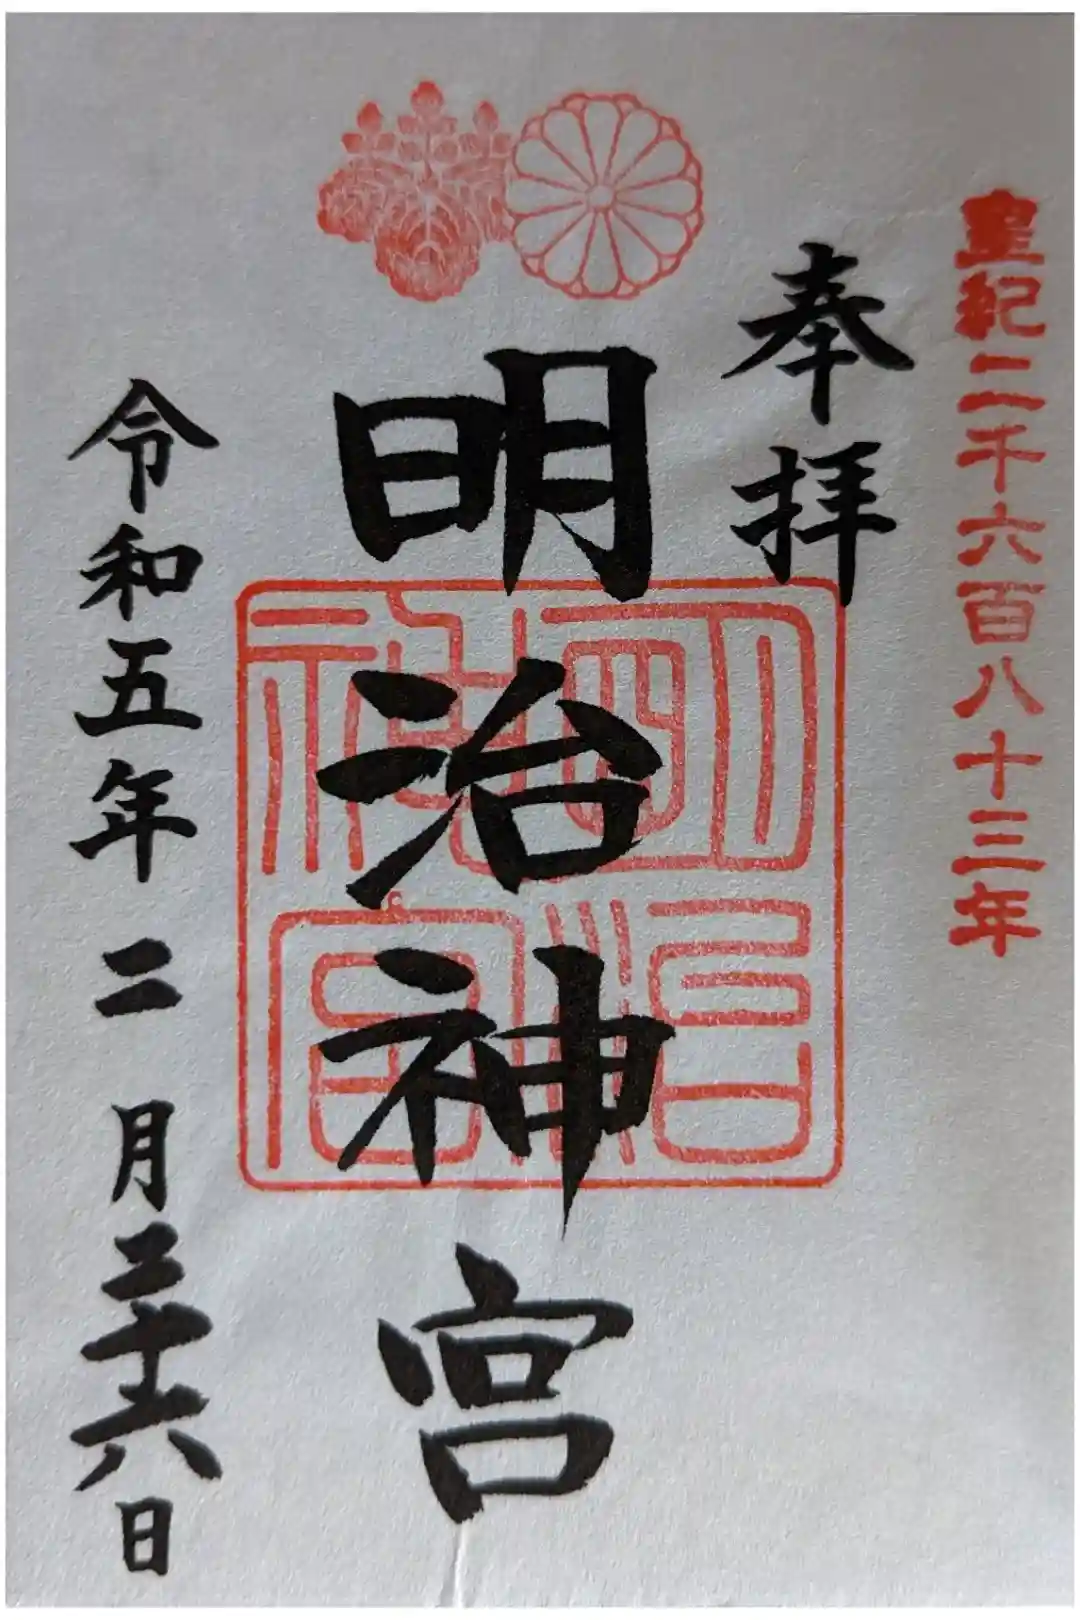 皇紀二千六百八十三年
奉拝
明治神宮
明治神宮
令和五年二月二十六日